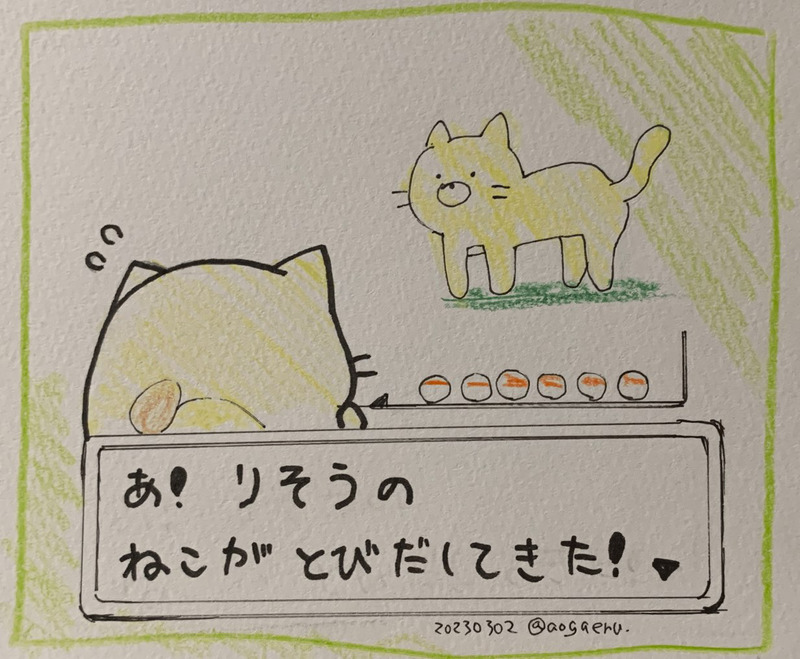 あ! りそうの
ねこが とびだしてきた!
20230302 @aogaeru.